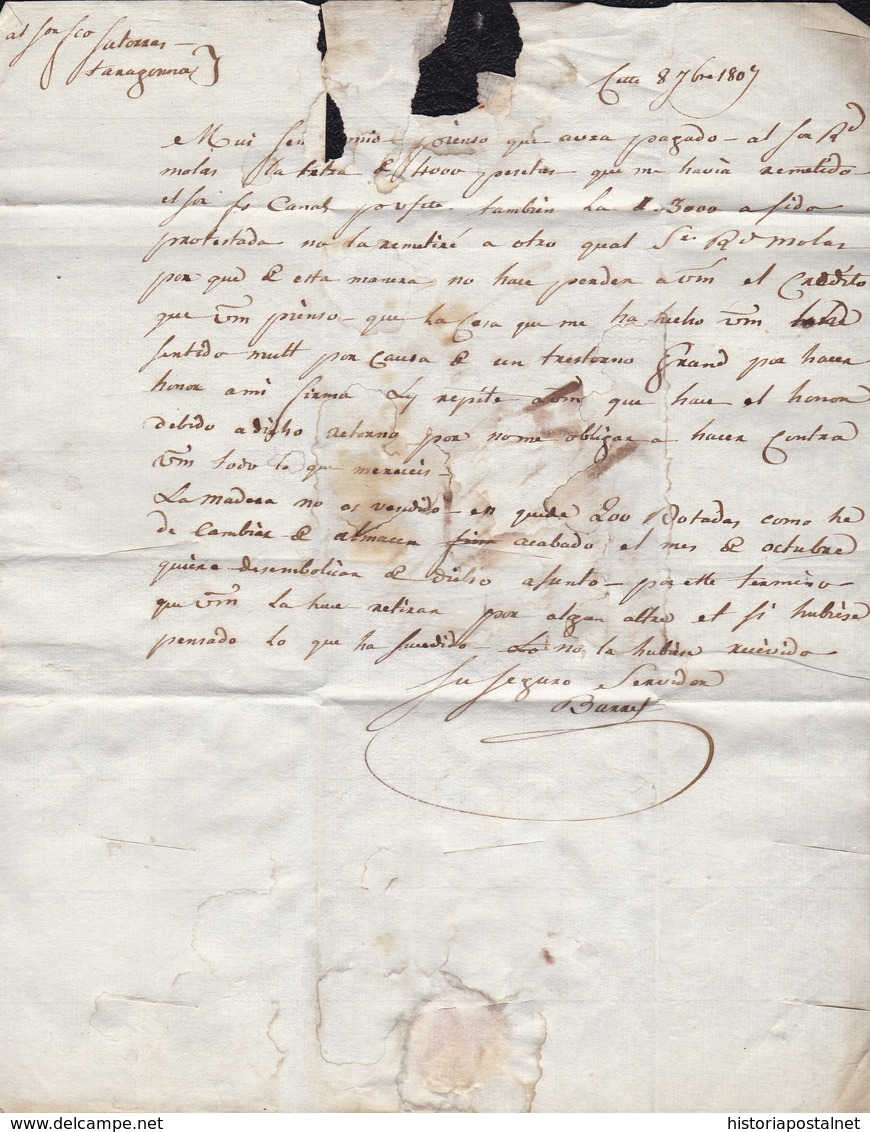 al Sor fco
Sutorras
taragonna
Cette 8 7bre 1807
Mui Sen mio pienso que aura pagado al Sor Rd
molas la letra de 4000 pesetas que me havia remetido
el Sor Canals tambien la d 3000 a sido
protestada no la remetiré a otro qual Sr Rd molas
por que de esta manera no hace perder a vm el Credito
que vm pienso que la Cosa que me ha hecho vm
sentido mult por Causa de un trestorno Grand por hacer
honor a mi firma Ly repite a vm que hace el honor
debido a dicho retorno por no me obligar a hacer Contra
vm todo lo que mereceis
La madera no es vendido en quede 200 Rotadas como he
de Cambiar de almacen acabado el mes de octubre
quiere desembolicar de dicho asunto por este termino
que vm la hace retirar por algun altre et si hubiese
pensado lo que ha sucedido Lo no la hubiese recivido
Su Seguro Servidor
Barres
www.delcampe.net
historiapostalnet